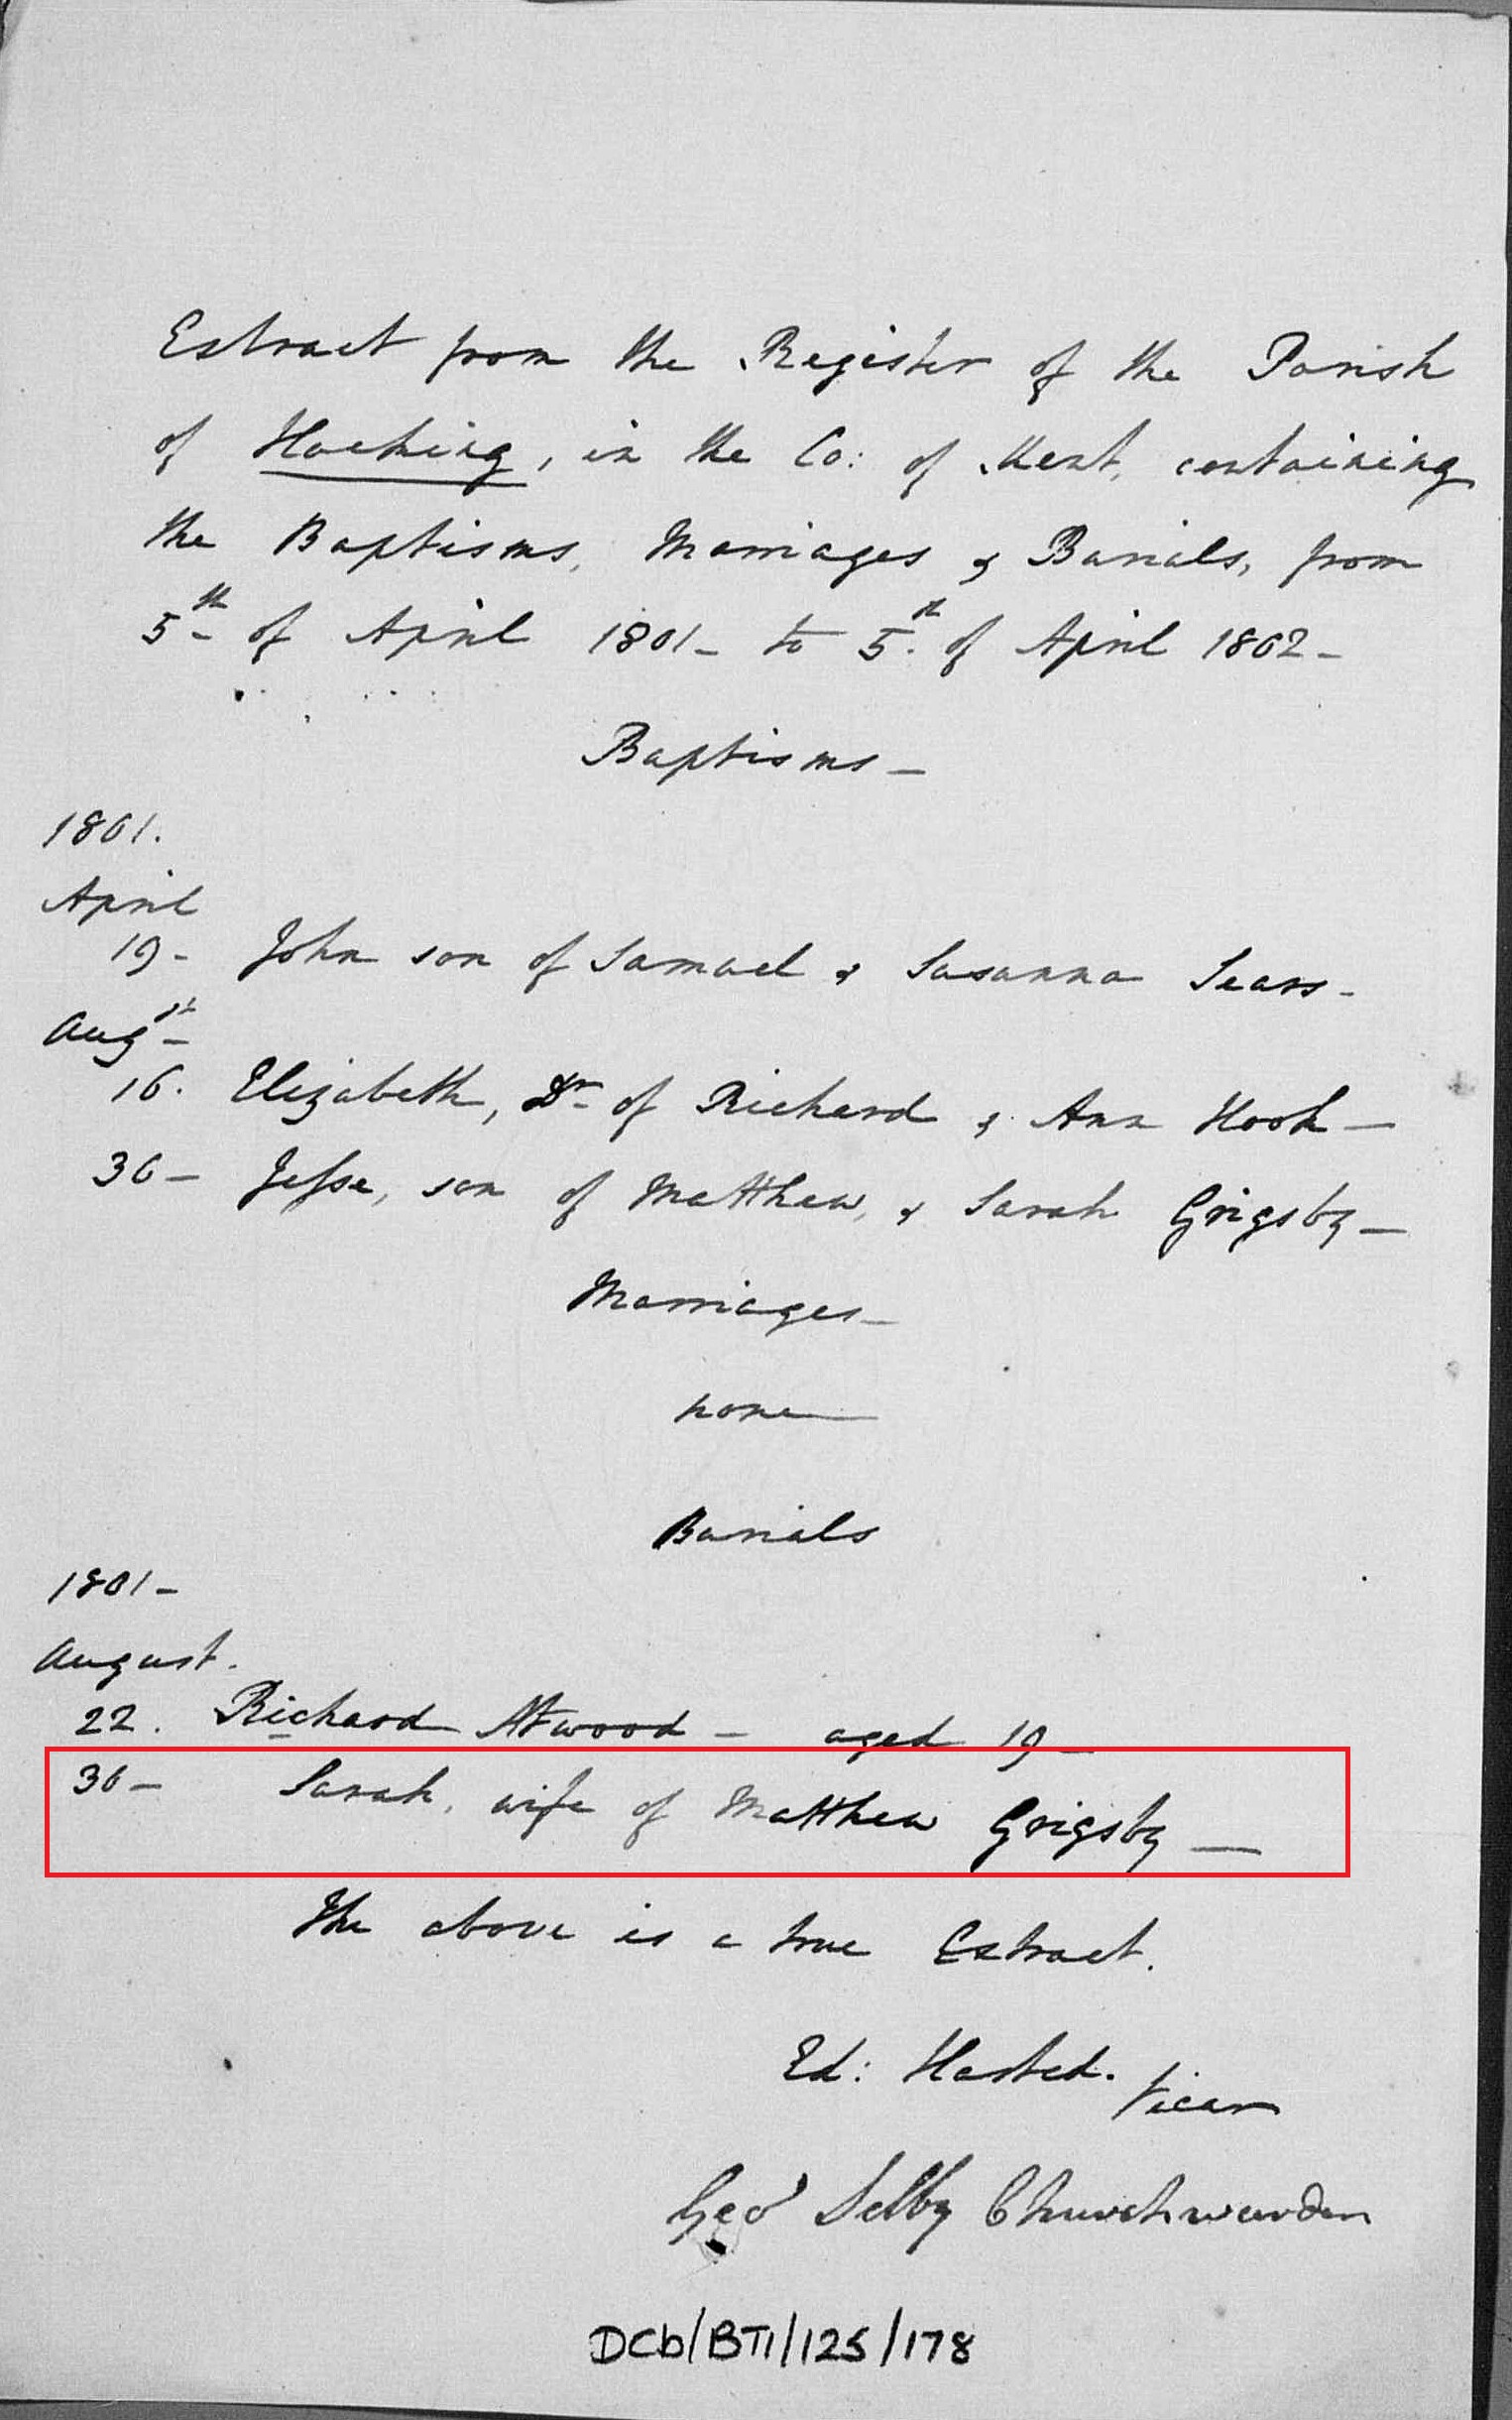 Extract from the Register of the Parish
of Hocking, in the Co: of Kent, containing
the Baptisms, Marriages & Burials, from
5th of April 1801 - to 5th of April 1802 -
Baptisms -
1801.
April
19 - John son of Samuel & Susanna Sears -
Augst
16. Elizabeth, Dr of Richard & Ann Hook -
30 - Jesse, son of Matthew, & Sarah Grigsby -
Marriages -
none
Burials
1801 -
August.
22. Richard Atwood - aged 19 -
30 - Sarah, wife of Matthew Grigsby -
The above is a true Extract.
Ed: Hasted. Vicar
Geo Selby Churchwarden
DCb/BT1/125/178